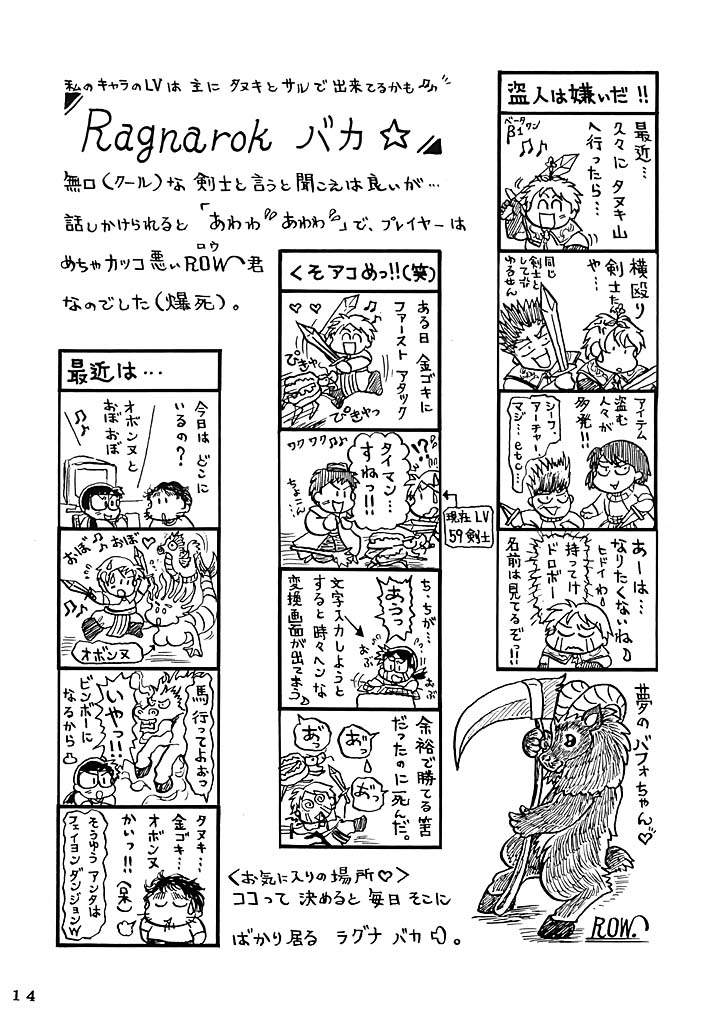 私のキャラのLVは 主に タヌキと サルで 出来てるかも
Ragnarok バカ ☆
無口(クール)な 剣士と言うと聞こえは良いが…
話しかけられると「あわわ あわわ」で、プレイヤーは
めちゃカッコ悪い ROW君
ロウ
なのでした(爆死)。
盗人は嫌いだ!!
ベータワン
β1
最近…
久々に タヌキ山
へ行ったら…
横殴り
剣士た
や…
同じ
剣士と
して
ゆるせん
アイテム
盗む
人々が
多発!!
シーフ、
アーチャー、
マジ…etc…
あーは…
なりたくないね
ヒドイわ
持ってけ
ドロボー
名前は見てるぞっ!!
くそアコめっ!!(笑)
ある日 金ゴキに
ファースト アタック
ぴきゃ
ぴきゃっ
タイマン…
すねっ!!
ワクワク
ちょこん
!?
現在 LV
59 剣士
ち、ちが…
あうっ
おぶ
おぶ
文字入力しようと
すると 時々ヘンな
変換画面が出てまう
余裕で勝てる筈
だったのに死んだ。
おっ
おっ
おっ
最近は…
今日は どこに
いるの?
オボンヌと
おぼおぼ
おぼ
おぼ
オボンヌ
馬 行ってよぉっ
いやっ!!
ビンボーに
なるから
タヌキ…
金ゴキ…
オボンヌ
かいっ!!(呆)
そうゆう アンタは
フェイヨン ダンジョンw
<お気に入りの場所♡>
ココって 決めると 毎日 そこに
ばかり居る ラグナ バカ。
夢の バフォちゃん♡
ROW.
14